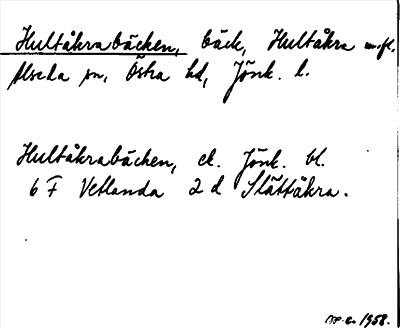 Hultåkrabäcken, bäck, Hultåkra m.fl.
Alseda sn, Östra hd, Jönk. l.
Hultåkrabäcken, ek. Jönk. bl.
6 F Vetlanda 2 d Slättåkra.
1958.